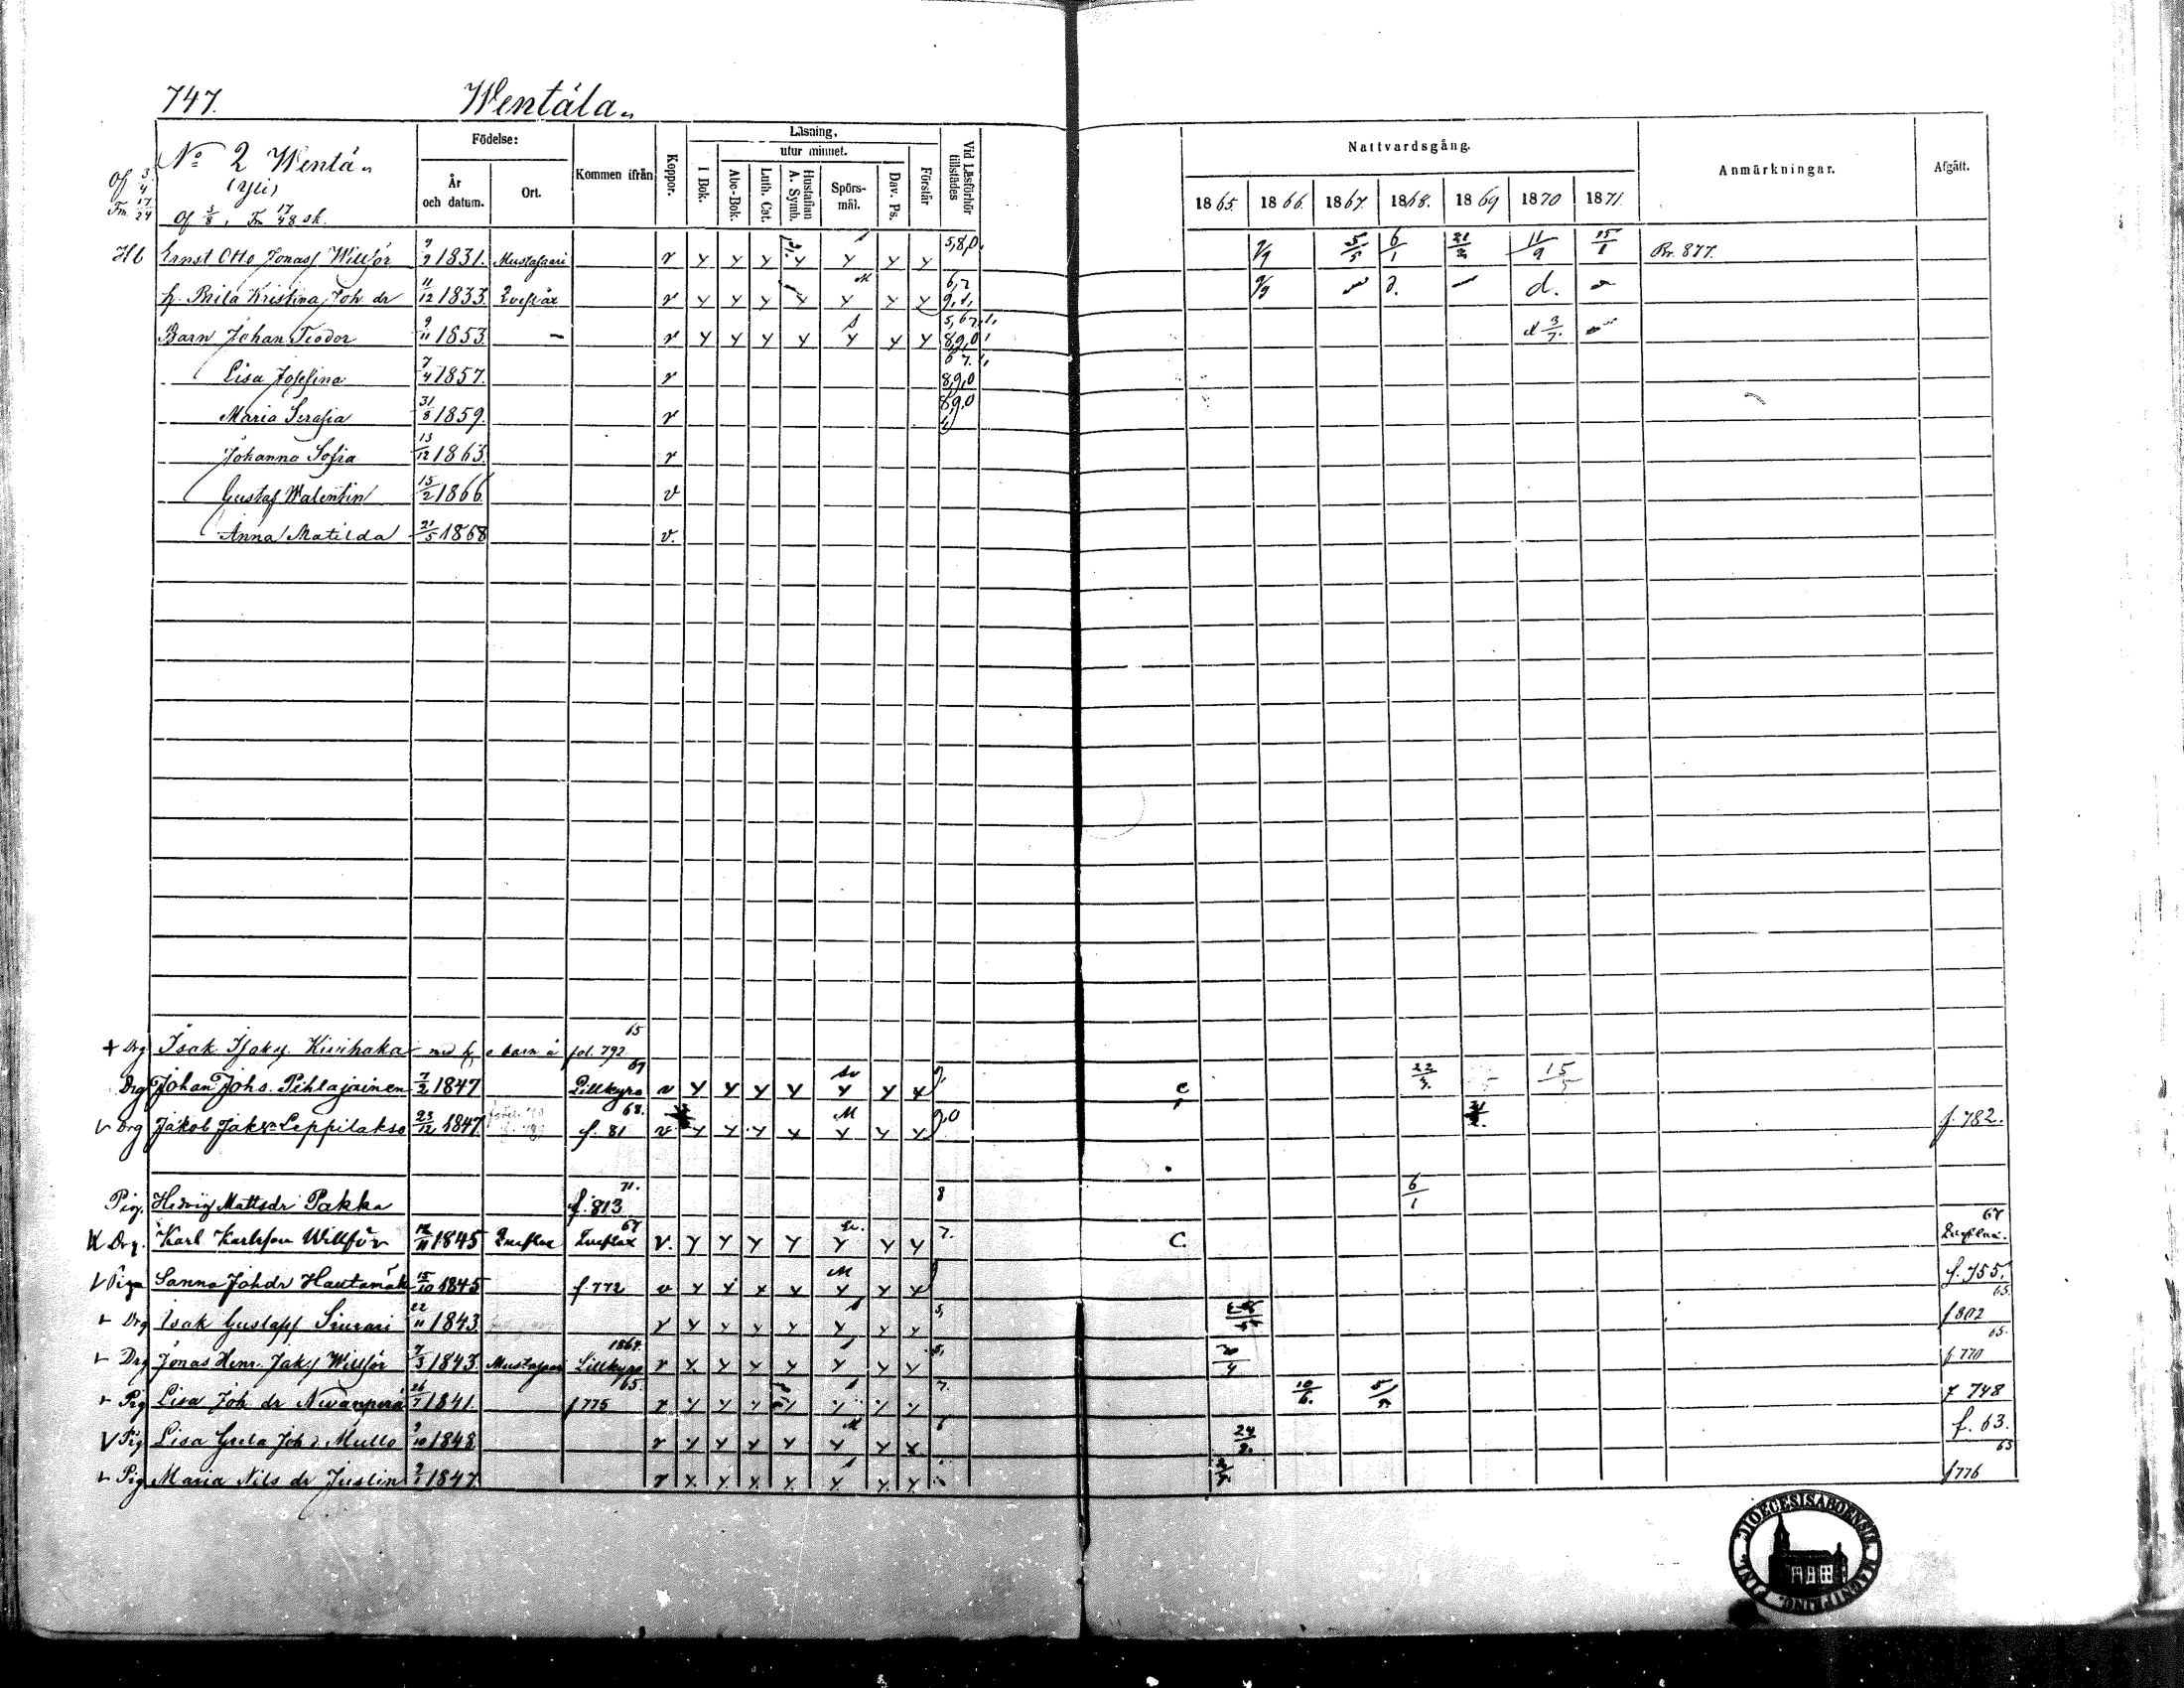 747. Wentälä.
No 2 Wentä.
(Yli)
Of 3/8, Fm 17/48 sk.
Of 3/4 Fm 17/24
Födelse: År och datum. Ort. Kommen ifrån Koppor. Läsning, I Bok. utur minnet. Abc-Bok. Luth. Cat. Hustaflan A. Symb. Spörsmål. Dav. Ps. Förstår Vid Läsförhör tillstädes
Nattvardsgång. 1865. 1866. 1867. 1868. 1869 1870 1871. Anmärkningar. Afgått.
Hb Ernst Otto Jonass Willför 9/9 1831. Mustasaari v y y y y y y y 5,8,0, 5/5 6/1 11/9 15/1 Pr. 877.
h. Brita Kristina Joh dr 11/12 1833. Qveflax v y y y y y y y 6,7 9,1, d. d.
Barn Johan Teodor 9/11 1853. - v y y y y y y y 5,67,1, 8,9,0 d 3/7.
Lisa Josefina 7/4 1857. v 67.1, 8,9,0
Maria Serafia 31/8 1859. v 8,9,0
Johanna Sofia 13/12 1863. v
Gustaf Walentin 15/2 1866. v
Anna Matilda 21/5 1868 v.
+ Drg Isak Isaks. Kivihaka med h o barn å fol. 792 15
Drg Johan Johs. Pihlajainen 7/2 1847 Lillkyro 67 v y y y y y y y c 22/3. 15/5
v Drg Jakob Jaks. Leppilakso 23/12 1847. f. 81 68. v y y y y M y y y 9,0 f. 782.
Pig. Hedvig Mattsdr Pakka f. 813 71. 8 6/1
Drg. Karl Karlsson Willför 1845 Qveflax Qveflax 67 v. y y y y y y y 7. C. Qveflax. 67
v Piga Sanna Johdr Hautamäk 15/10 1845 f. 772 v y y y y M y y y f. 755.
v Drg Isak Gustafss 22/11 1843. v y y y y y y y 5, f 802 65
v Drg Jonas Henr. Jaks Willför 7/3 1843. Mustasaar Lillkyro 1864. v y y y y y y y 5, f 770 65.
v Pig Lisa Joh dr Nivanperä 26/7 1841. f 775 65. v y y y y y y y 7. 10/6. f 748
v Pig Lisa Greta Joh d Mullo 9/10 1848. v y y y y M y y y 6 f. 63.
v Pig Maria Nils dr Juslin 1847. v y y y y y y y f 776 65
DIOECESIS ABOENSIS MAGNI PRINC. FINL.